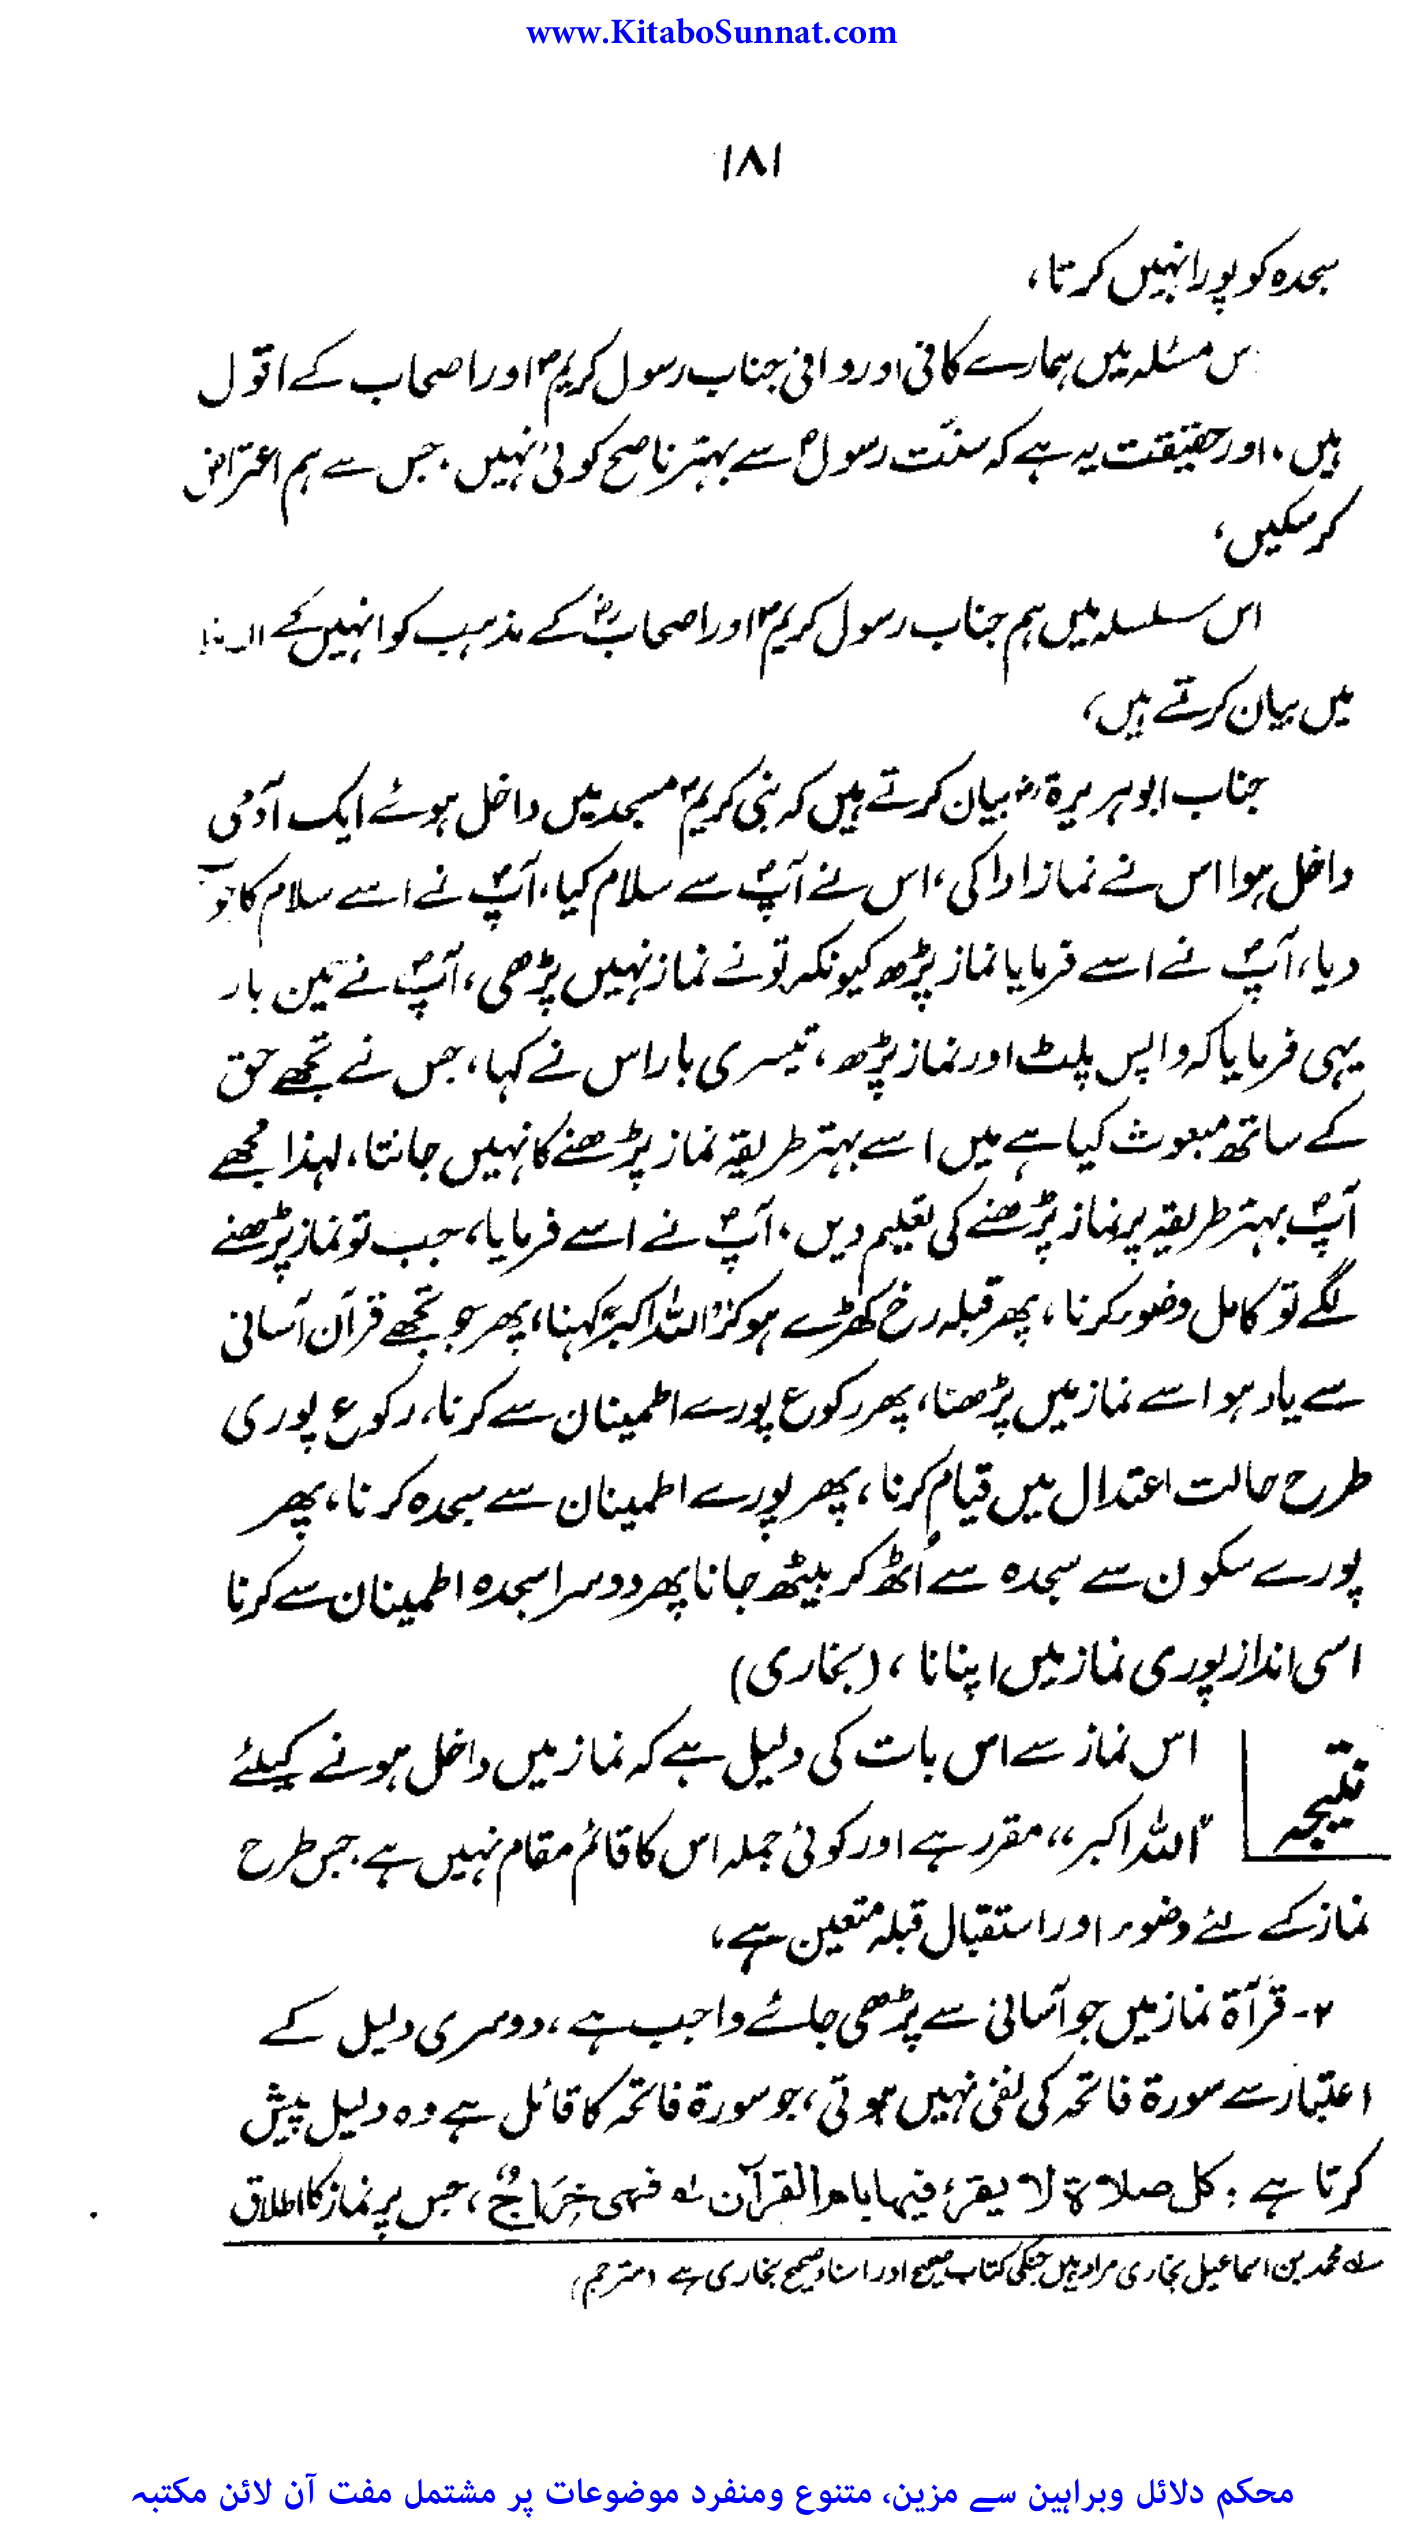 www.KitaboSunnat.com
۱۸۱
سجدہ کو پورا نہیں کرتا،
س مسئلہ میں ہمارے کافی اور وافی جناب رسول کریمؐ اور اصحاب کے اقول
ہیں، اور حقیقت یہ ہے کہ سنّت رسولؐ سے بہتر ناصح کوئی نہیں. جس سے ہم اعتراض
کر سکیں،
اس سلسلہ میں ہم جناب رسول کریمؐ اور اصحابؓ کے مذہب کو انہیں کے
میں بیان کرتے ہیں،
جناب ابوہریرۃؓ بیان کرتے ہیں کہ نبی کریمؐ مسجد میں داخل ہوئے ایک آدمی
داخل ہوا اس نے نماز ادا کی، اس نے آپؐ سے سلام کیا، آپؐ نے اسے سلام کا
دیا، آپؐ نے اسے فرمایا نماز پڑھ کیونکہ تو نے نماز نہیں پڑھی، آپؐ نے تین بار
یہی فرمایا کہ واپس پلٹ اور نماز پڑھ، تیسری بار اس نے کہا، جس نے تجھے حق
کے ساتھ مبعوث کیا ہے میں اسے بہتر طریقہ نماز پڑھنے کا نہیں جانتا، لہذا مجھے
آپؐ بہتر طریقہ پر نماز پڑھنے کی تعلیم دیں، آپؐ نے اسے فرمایا، جب تو نماز پڑھنے
لگے تو کامل وضوء کرنا، پھر قبلہ رخ کھڑے ہو کر "اللہ اکبر" کہنا، پھر جو تجھے قرآن آسانی
سے یاد ہو اسے نماز میں پڑھنا، پھر رکوع پورے اطمینان سے کرنا، رکوع پوری
طرح حالت اعتدال میں قیام کرنا، پھر پورے اطمینان سے سجدہ کرنا، پھر
پورے سکون سے سجدہ سے اُٹھ کر بیٹھ جانا پھر دوسرا سجدہ اطمینان سے کرنا
اسی انداز پوری نماز میں اپنانا، (بخاری)
نتیجہ اس نماز سے اس بات کی دلیل ہے کہ نماز میں داخل ہونے کیلئے
"اللہ اکبر" مقرر ہے اور کوئی جملہ اس کا قائم مقام نہیں ہے. جس طرح
نماز کے لئے وضوء اور استقبال قبلہ متعین ہے،
۲- قرآۃ نماز میں جو آسانی سے پڑھی جائے واجب ہے، دوسری دلیل کے
اعتبار سے سورۃ فاتحہ کی نفی نہیں ہوتی، جو سورۃ فاتحہ کا قائل ہے وہ دلیل پیش
کرتا ہے: کل صلاۃ لا یقرئ فیہا بام القرآن لہ فہی خِرَاجٌ، جس پر نماز کا اطلاق
لہ محمد بن اسماعیل بخاری مراد ہیں جنکی کتاب صحیح اور اسناد صحیح بخاری ہے (مترجم)
محکم دلائل وبراہین سے مزین، متنوع ومنفرد موضوعات پر مشتمل مفت آن لائن مکتبہ